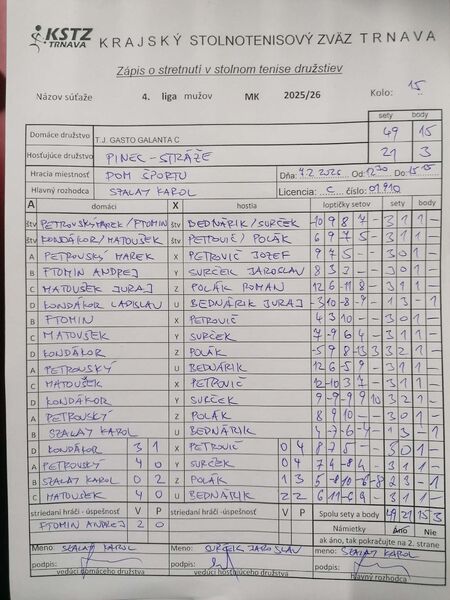 KSTZ TRNAVA KRAJSKÝ STOLNOTENISOVÝ ZVÄZ TRNAVA
Zápis o stretnutí v stolnom tenise družstiev
Názov súťaže 4. liga mužov MK 2025/26 Kolo: 15
sety body
Domáce družstvo T.J. GASTO GALANTA C 49 15
Hosťujúce družstvo PINEC - STRÁŽE 21 3
Hracia miestnosť DOM ŠPORTU Dňa: 7.2.2026 Od: 12:30 Do: 15:15
Hlavný rozhodca SZALAY KAROL Licencia: C číslo: 01910
A domáci X hostia loptičky setov sety body
štv PETROVSKÝ MAREK/FTOMIN štv BEDNÁRIK/SURČEK -10 9 8 7 - 3 1 1 -
štv KONDÁKOR/MATOUŠEK štv PETROVIČ/POLÁK 6 9 -7 5 - 3 1 1 -
A PETROVSKÝ MAREK X PETROVIČ JOZEF 9 7 5 - - 3 0 1 -
B FTOMIN ANDREJ Y SURČEK JAROSLAV 8 3 3 - - 3 0 1 -
C MATOUŠEK JURAJ Z POLÁK ROMAN 12 6 -11 8 - 3 1 1 -
D KONDÁKOR LADISLAV U BEDNÁRIK JURAJ -3 10 -8 -9 - 1 3 - 1
B FTOMIN X PETROVIČ 4 3 10 - - 3 0 1 -
C MATOUŠEK Y SURČEK 7 -9 6 4 - 3 1 1 -
D KONDÁKOR Z POLÁK -5 9 8 -13 3 3 2 1 -
A PETROVSKÝ U BEDNÁRIK 12 6 -5 9 - 3 1 1 -
C MATOUŠEK X PETROVIČ 12 -10 3 7 - 3 1 1 -
D KONDÁKOR Y SURČEK -9 -9 9 9 10 3 2 1 -
A PETROVSKÝ Z POLÁK 8 9 10 - - 3 0 1 -
B SZALAY KAROL U BEDNÁRIK -4 -7 6 -4 - 1 3 - 1
D KONDÁKOR 3 1 X PETROVIČ 0 4 8 7 5 - - 3 0 1 -
A PETROVSKÝ 4 0 Y SURČEK 0 4 7 4 -8 4 - 3 1 1 -
B SZALAY KAROL 0 2 Z POLÁK 1 3 5 -8 10 -6 -8 2 3 - 1
C MATOUŠEK 4 0 U BEDNÁRIK 2 2 6 11 -6 9 - 3 1 1 -
striedaní hráči - úspešnosť V P striedaní hráči - úspešnosť V P Spolu sety a body 49 21 15 3
FTOMIN ANDREJ 2 0 Námietky áno Nie
ak áno, tak pokračujte na 2. strane
Meno: SZALAY KAROL Meno: SURČEK JAROSLAV Meno: SZALAY KAROL
podpis: podpis: podpis:
vedúci domáceho družstva vedúci hosťujúceho družstva hlavný rozhodca